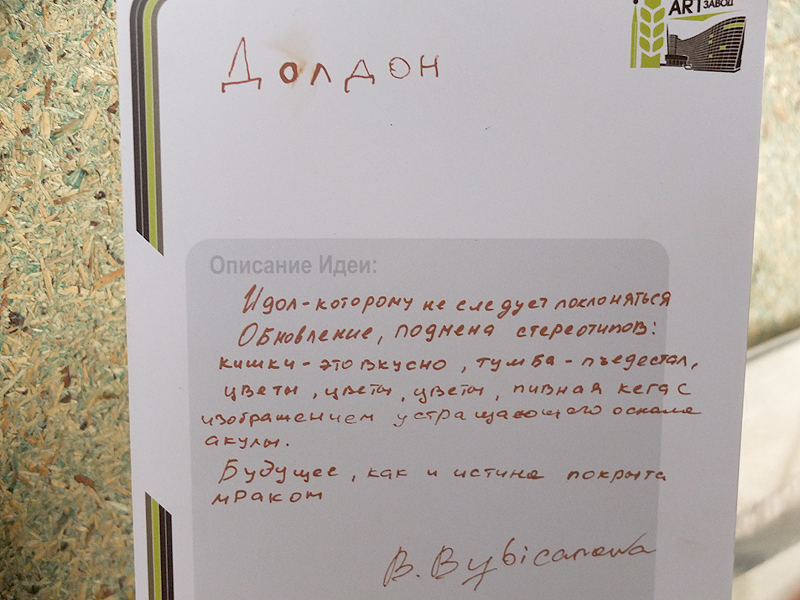 ART ЗАВОД
Долдон
Описание Идеи:
Идол-которому не следует поклоняться
Обновление, подмена стереотипов:
кишки-это вкусно, тумба-пьедестал,
цветы, цветы, цветы, пивная кега с
изображением устращающего оскала
акулы.
Будущее, как и истина покрыта
мраком